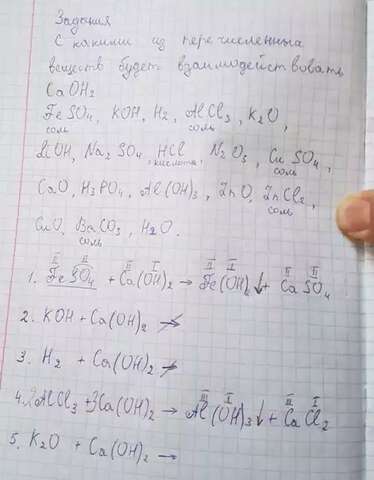 Задания
С какими из перечисленных
веществ будет взаимодействовать
CaOH₂
FeSO₄, KOH, H₂, AlCl₃, K₂O,
соль соль
LiOH, Na₂SO₄, HCl, N₂O₃, CuSO₄,
кислота соль
CaO, H₃PO₄, Al(OH)₃, ZnO, ZnCl₂,
соль
CuO, BaCO₃, H₂O.
соль
II II I II I II II
1. FeSO₄ + Ca(OH)₂ → Fe(OH)₂↓ + CaSO₄
2. KOH + Ca(OH)₂ ↛
3. H₂ + Ca(OH)₂ ↛
III I II I
4. 2AlCl₃ + 3Ca(OH)₂ → Al(OH)₃↓ + CaCl₂
5. K₂O + Ca(OH)₂ →